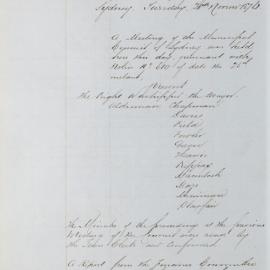 Sydney, Tuesday, 28th Novr 1876
A Meeting of the Municipal
Council of Sydney was held
here this day pursuant with
Notice No of date the 25th
instant.
Present
The Right Worshipful the Mayor
Aldermen Chapman
Davies
Field
Fowler
Green
Hearne
Macintosh
Moore
Merriman
Playfair
The Minutes of the proceedings at the previous
Meeting of the Council was read by
the Town Clerk and confirmed.
A Report from the Finance Committee